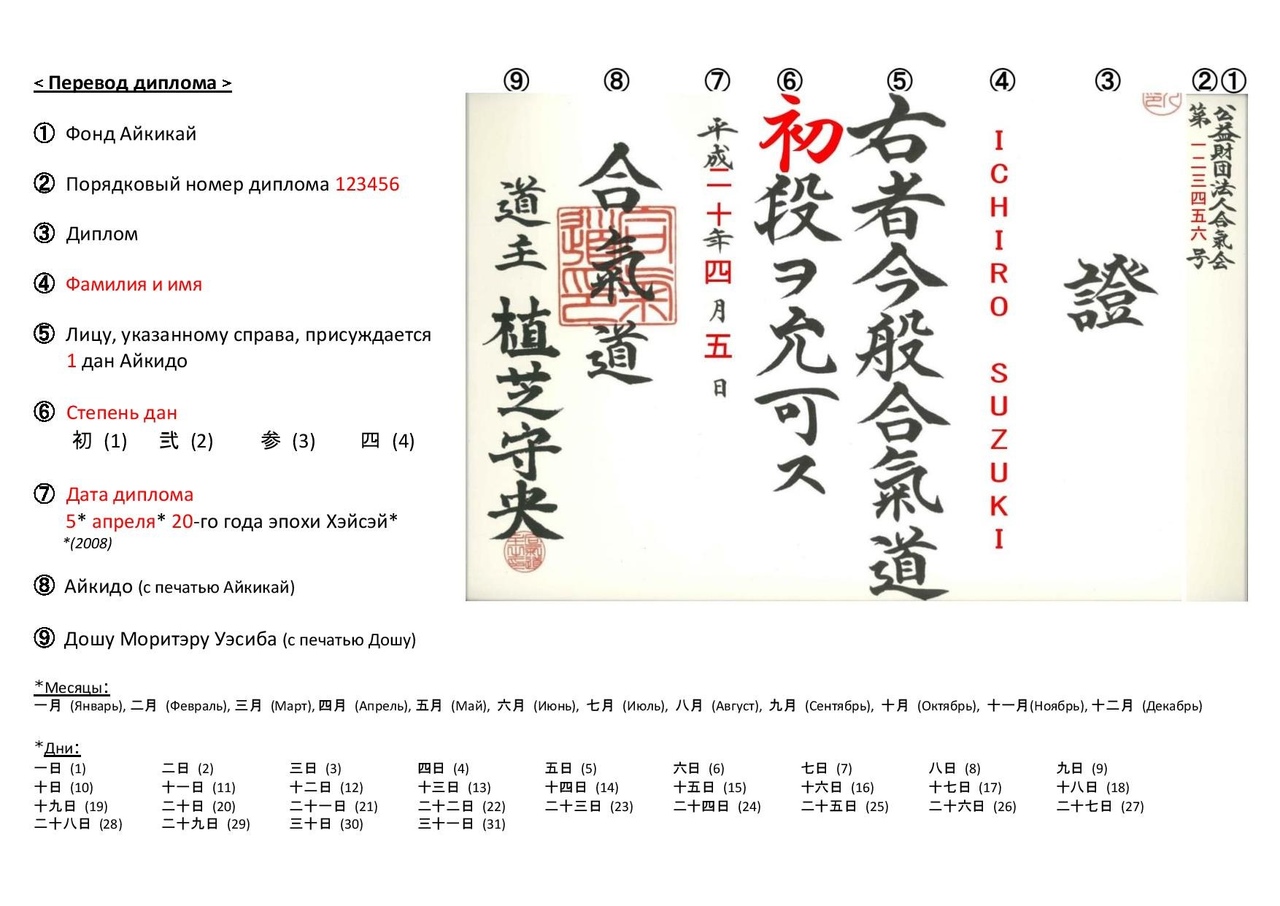 < Перевод диплома >
① Фонд Айкикай
② Порядковый номер диплома 123456
③ Диплом
④ Фамилия и имя
⑤ Лицу, указанному справа, присуждается
1 дан Айкидо
⑥ Степень дан
初 (1) 弐 (2) 参 (3) 四 (4)
⑦ Дата диплома
5* апреля* 20-го года эпохи Хэйсэй*
*(2008)
⑧ Айкидо (с печатью Айкикай)
⑨ Дошу Моритэру Уэсиба (с печатью Дошу)
⑨ ⑧ ⑦ ⑥ ⑤ ④ ③ ② ①
公益財団法人合氣会
第一二三四五六号
證
ICHIRO SUZUKI
右者今般合氣道
初段ヲ允可ス
平成二十年四月五日
合氣道
道主 植芝守央
*Месяцы:
一月 (Январь), 二月 (Февраль), 三月 (Март), 四月 (Апрель), 五月 (Май), 六月 (Июнь), 七月 (Июль), 八月 (Август), 九月 (Сентябрь), 十月 (Октябрь), 十一月(Ноябрь), 十二月 (Декабрь)
*Дни:
一日 (1) 二日 (2) 三日 (3) 四日 (4) 五日 (5) 六日 (6) 七日 (7) 八日 (8) 九日 (9)
十日 (10) 十一日 (11) 十二日 (12) 十三日 (13) 十四日 (14) 十五日 (15) 十六日 (16) 十七日 (17) 十八日 (18)
十九日 (19) 二十日 (20) 二十一日 (21) 二十二日 (22) 二十三日 (23) 二十四日 (24) 二十五日 (25) 二十六日 (26) 二十七日 (27)
二十八日 (28) 二十九日 (29) 三十日 (30) 三十一日 (31)